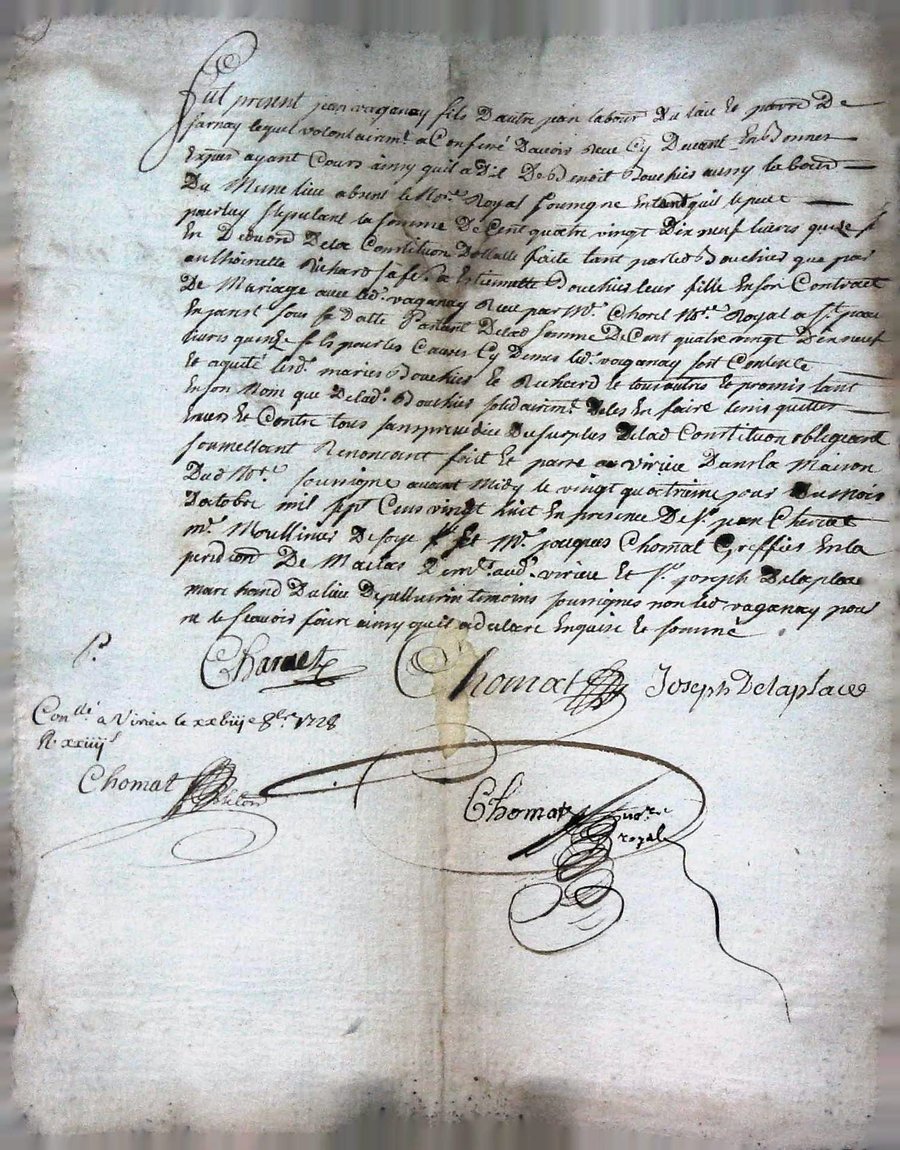 fut present jean vaganay fils D'autre jean labour Du lieu et parre De
farnay lequel volontairemt a Confessé Davoir Receu Cy Devant En Bonnes
Especes ayant Cours ainsy quil a Dit De Benoit Bouchies aussy labour
Du Meme lieu absent le Nore Royal soussigne Entandquil le peut
pour luy stipulant la somme De Cent quatre vingt Dix neuf livres quinze s
En Deduon Dela Constitution Dottalle faite tant par led Bouchies que par
anthoinette Richard sa fe a Estiennette Bouchies leur fille En son Contract
De Mariage avec led. vaganay Receu par Me. Chorel Nore Royal a St. paul
En jarest sous sa Datte Partant Delad somme De Cent quatre vingt Dix neuf
livres quinze s. pour les Causes Cy Dessus led. vaganay soit Contente
Et aquité lesd. maries Bouchies et Richard et tous autres et promis tant
En son Nom que Delad. Bouchies solidairemt. Deles En faire tenir quittes
Envers Et Contre tous sans prejudice Du surplus Delad Constitution obligeant
soumettant Renoncant fait Et passé au virieu Dans la Maison
Dud Nore. soussigne avant Midy le vingt quatrieme jour Du mois
Doctobre mil sept Cens vingt huit En presence De Sr. jean Charvet
me. Moullinier De soye Et Me. jacques Chomat Greffier En la
juridon De Maclas Demt. aud. virieu Et Sr. joseph Delaplace
marchand Du lieu De pellussin temoins soussignes non led vaganay pour
ne le scavoir faire ainsy quil a declaré Enquise et sommé
Charvet Chomat Joseph Delaplace
Conllé a Virieu le xxbiij e 8bre 1728
R. xxiiij s
Chomat
Chomat nore
royal